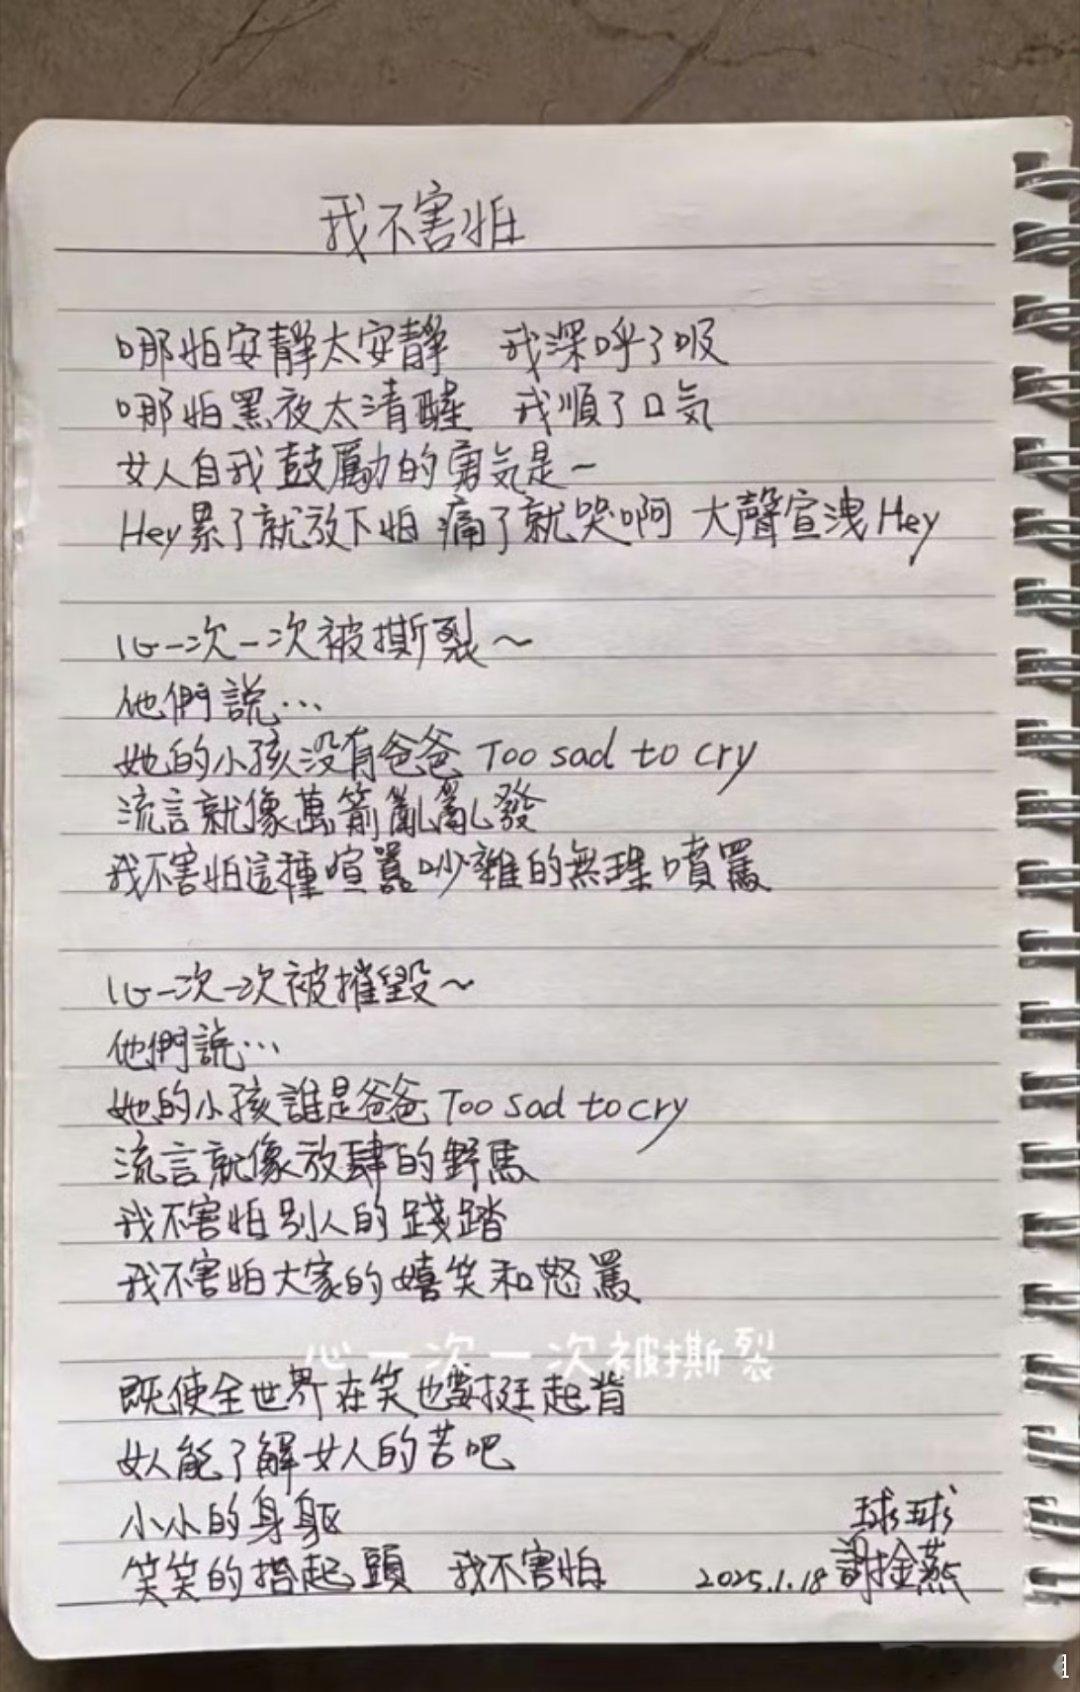 我不害怕
哪怕安靜太安靜 我深呼了吸
哪怕黑夜太清醒 我順了口氣
女人自我鼓勵的勇氣是～
Hey累了就放下怕 痛了就哭啊 大聲宣洩Hey
心一次一次被撕裂～
他們說...
她的小孩沒有爸爸 Too sad to cry
流言就像萬箭亂亂發
我不害怕這種喧囂吵雜的無理噴罵
心一次一次被摧毀～
他們說...
她的小孩誰是爸爸 Too sad to cry
流言就像放肆的野馬
我不害怕別人的踐踏
我不害怕大家的嬉笑和怒罵
心一次一次被撕裂
既使全世界在笑也要挺起背
女人能了解女人的苦吧
小小的身軀
笑笑的抬起頭 我不害怕
球球
2025.1.18 謝金燕